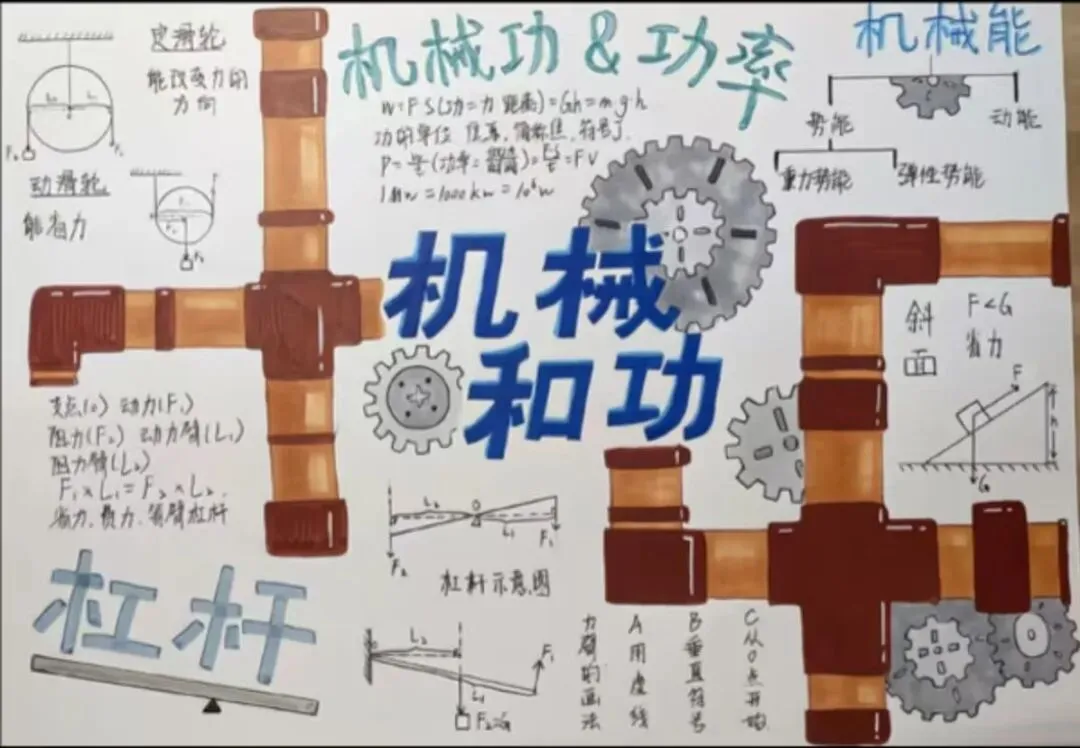 定滑轮
能改变力的
方向
L₂ L₁
F₂ F₁
动滑轮
能省力
机械功&功率
W=F·S(功=力·距离)=Gh=m·g·h
功的单位 焦耳,简称焦,符号J
=FV
1MW=1000kW=10⁶W
机械能
势能
动能
重力势能
弹性势能
机械
和功
斜
面
F<G
省力
F
h
G
支点(O) 动力(F₁)
阻力(F₂) 动力臂(L₁)
阻力臂(L₂)
F₁×L₁=F₂×L₂
省力、费力、等臂杠杆
杠杆
L₂ O L₁
F₂ F₁
杠杆示意图
L₂
F₁
L₁
F₂=G
力臂的画法
A用虚线
B垂直符号
C从O点开始